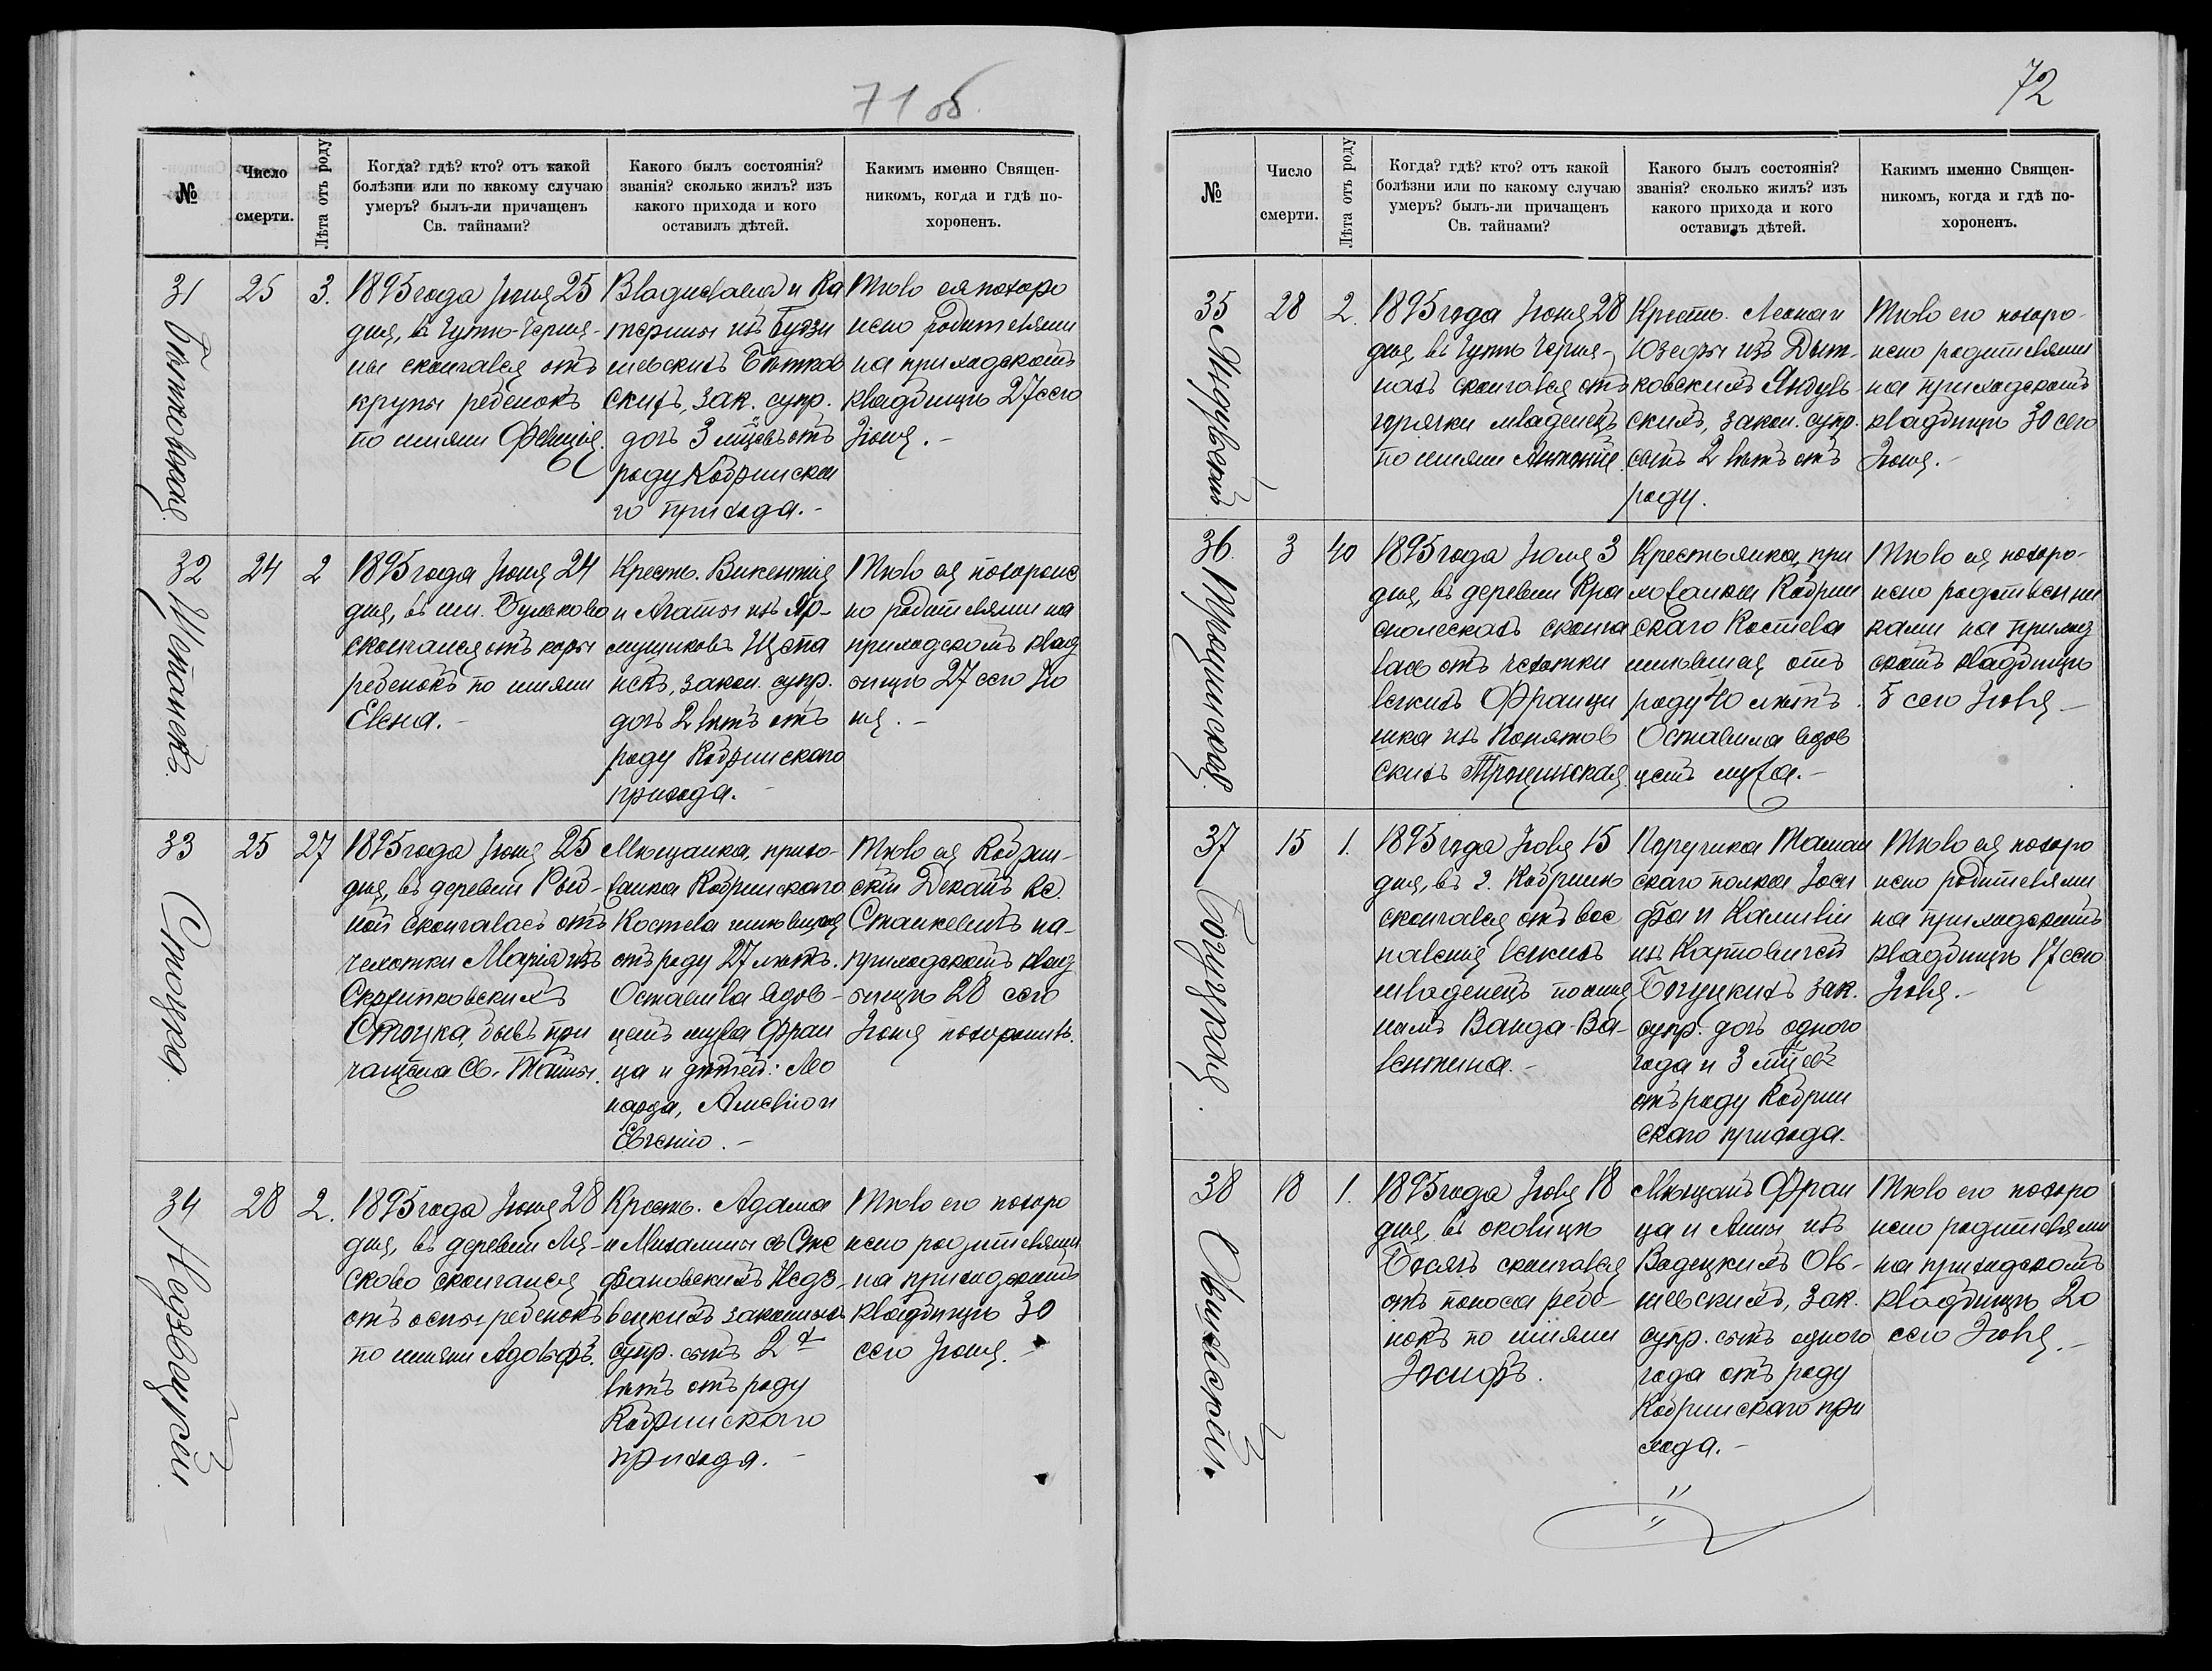 71 об.
№
Число
смерти.
Лѣта отъ роду
Когда? гдѣ? кто? отъ какой
болѣзни или по какому случаю
умеръ? былъ-ли причащенъ
Св. тайнами?
Какого былъ состоянія?
званія? сколько жилъ? изъ
какого прихода и кого
оставилъ дѣтей.
Какимъ именно Священ-
никомъ, когда и гдѣ по-
хороненъ.
31
25
3.
1895 года Іюня 25
дня, въ Гутѣ-Черня-
ны скончался отъ
крупы ребенокъ
по имени Фелиція.
Владислава и Ка
терины изъ
Битков
скихъ, зак. супр.
дочь 3 мцевъ отъ
роду Кобринска
го прихода.-
Тѣло ея похоро
нено родителями
на приходскомъ
кладбищѣ 27 сего
Іюня.-
32
Щепанекъ
24
2
1895 года Іюня 24
дня, въ им. Бульково
скончался отъ кори
ребенокъ по имени
Елена.-
Крестьян. Викентія
и Агаты изъ Яр-
мушиковъ Щепа
некъ, закон. супр.
дочь 2 лѣтъ отъ
роду Кобринскаго
прихода.-
Тѣло ея похороне
но родителями на
приходскомъ клад
бищѣ 27 сего Ію
ня.-
33
Стоцка
25
27
1895 года Іюня 25
дня, въ деревни
скончалась отъ
чехотки Марія изъ
Стоцка, бывъ при
чащена Св. Тайны.
Мѣщанка, прихо-
жанка Кобринскаго
Костела имѣвшая
отъ роду 27 лѣтъ.
Оставила вдов-
цемъ мужа Фран
ца и дѣтей: Лео
нарда, Амелію и
Евгенію.-
Тѣло ея Кобрин-
скій Деканъ Кс.
Станкевичъ на-
приходскомъ клад
бищѣ 28 сего
Іюня похоронилъ.
34
Недзвецкій
28
2.
1895 года Іюня 28
дня, въ деревни Ля-
сково скончался
отъ оспы ребенокъ
по имени Адольфъ.
Крестьян. Адама
и Михалины съ Сте
фановскихъ Недз-
вецкихъ законныхъ
супр. сынъ 2хъ
лѣтъ отъ роду
Кобринскаго
прихода.-
Тѣло его похоро
нено родителями
на приходскомъ
кладбищѣ 30
сего Іюня.-
72
№
Число
смерти.
Лѣта отъ роду
Когда? гдѣ? кто? отъ какой
болѣзни или по какому случаю
умеръ? былъ-ли причащенъ
Св. тайнами?
Какого былъ состоянія?
званія? сколько жилъ? изъ
какого прихода и кого
оставилъ дѣтей.
Какимъ именно Священ-
никомъ, когда и гдѣ по-
хороненъ.
35
28
2.
1895 года Іюня 28
дня, въ Гутѣ Черня-
нахъ скончался отъ
горячки младенецъ
по имени Антоній.
Крестьян. Леона и
Юзефы изъ Дыт-
ковскихъ
скихъ, закон. супр.
сынъ 2 лѣтъ отъ
роду.
Тѣло его похоро-
нено родителями
на приходскомъ
кладбищѣ 30 сего
Іюня.-
36.
3
40
1895 года Іюля 3
дня, въ деревни
скончa
лась отъ чехотки
легкихъ Франци
шка изъ Конятов
скихъ
Крестьянка, при
хожанка Кобрин
скаго Костела
имѣвшая отъ
роду 40 лѣтъ.
Оставила вдов
цемъ мужа.-
Тѣло ея похоро-
нено родственни
ками на приход
скомъ кладбищѣ
5 сего Іюля.-
37
Богуцкая.
15
1.
1895 года Іюля 15
дня, въ г. Кобринѣ
скончался отъ вос
паленія легкихъ
младенецъ по име
немъ Ванда-Ва-
лентина.-
Поручика Таман
скаго полка Іоси
фа и Камиліи
изъ Карповичей
Богуцкихъ зак.
супр. дочь одного
года и 3 мцевъ
отъ роду Кобрин
скаго прихода.
Тѣло ея похоро
нено родителями
на приходскомъ
кладбищѣ 17 сего
Іюля.-
38
18
1.
1895 года Іюля 18
дня, въ околицѣ
скончался
отъ поноса ребе-
нокъ по имени
Іосифъ.
Мѣщанъ Фран
ца и Анны изъ
шевскихъ, зак.
супр. сынъ одного
года отъ роду
Кобринскаго при
хода.-
Тѣло его похоро
нено родителями
на приходскомъ
кладбищѣ 20
сего Іюля.-